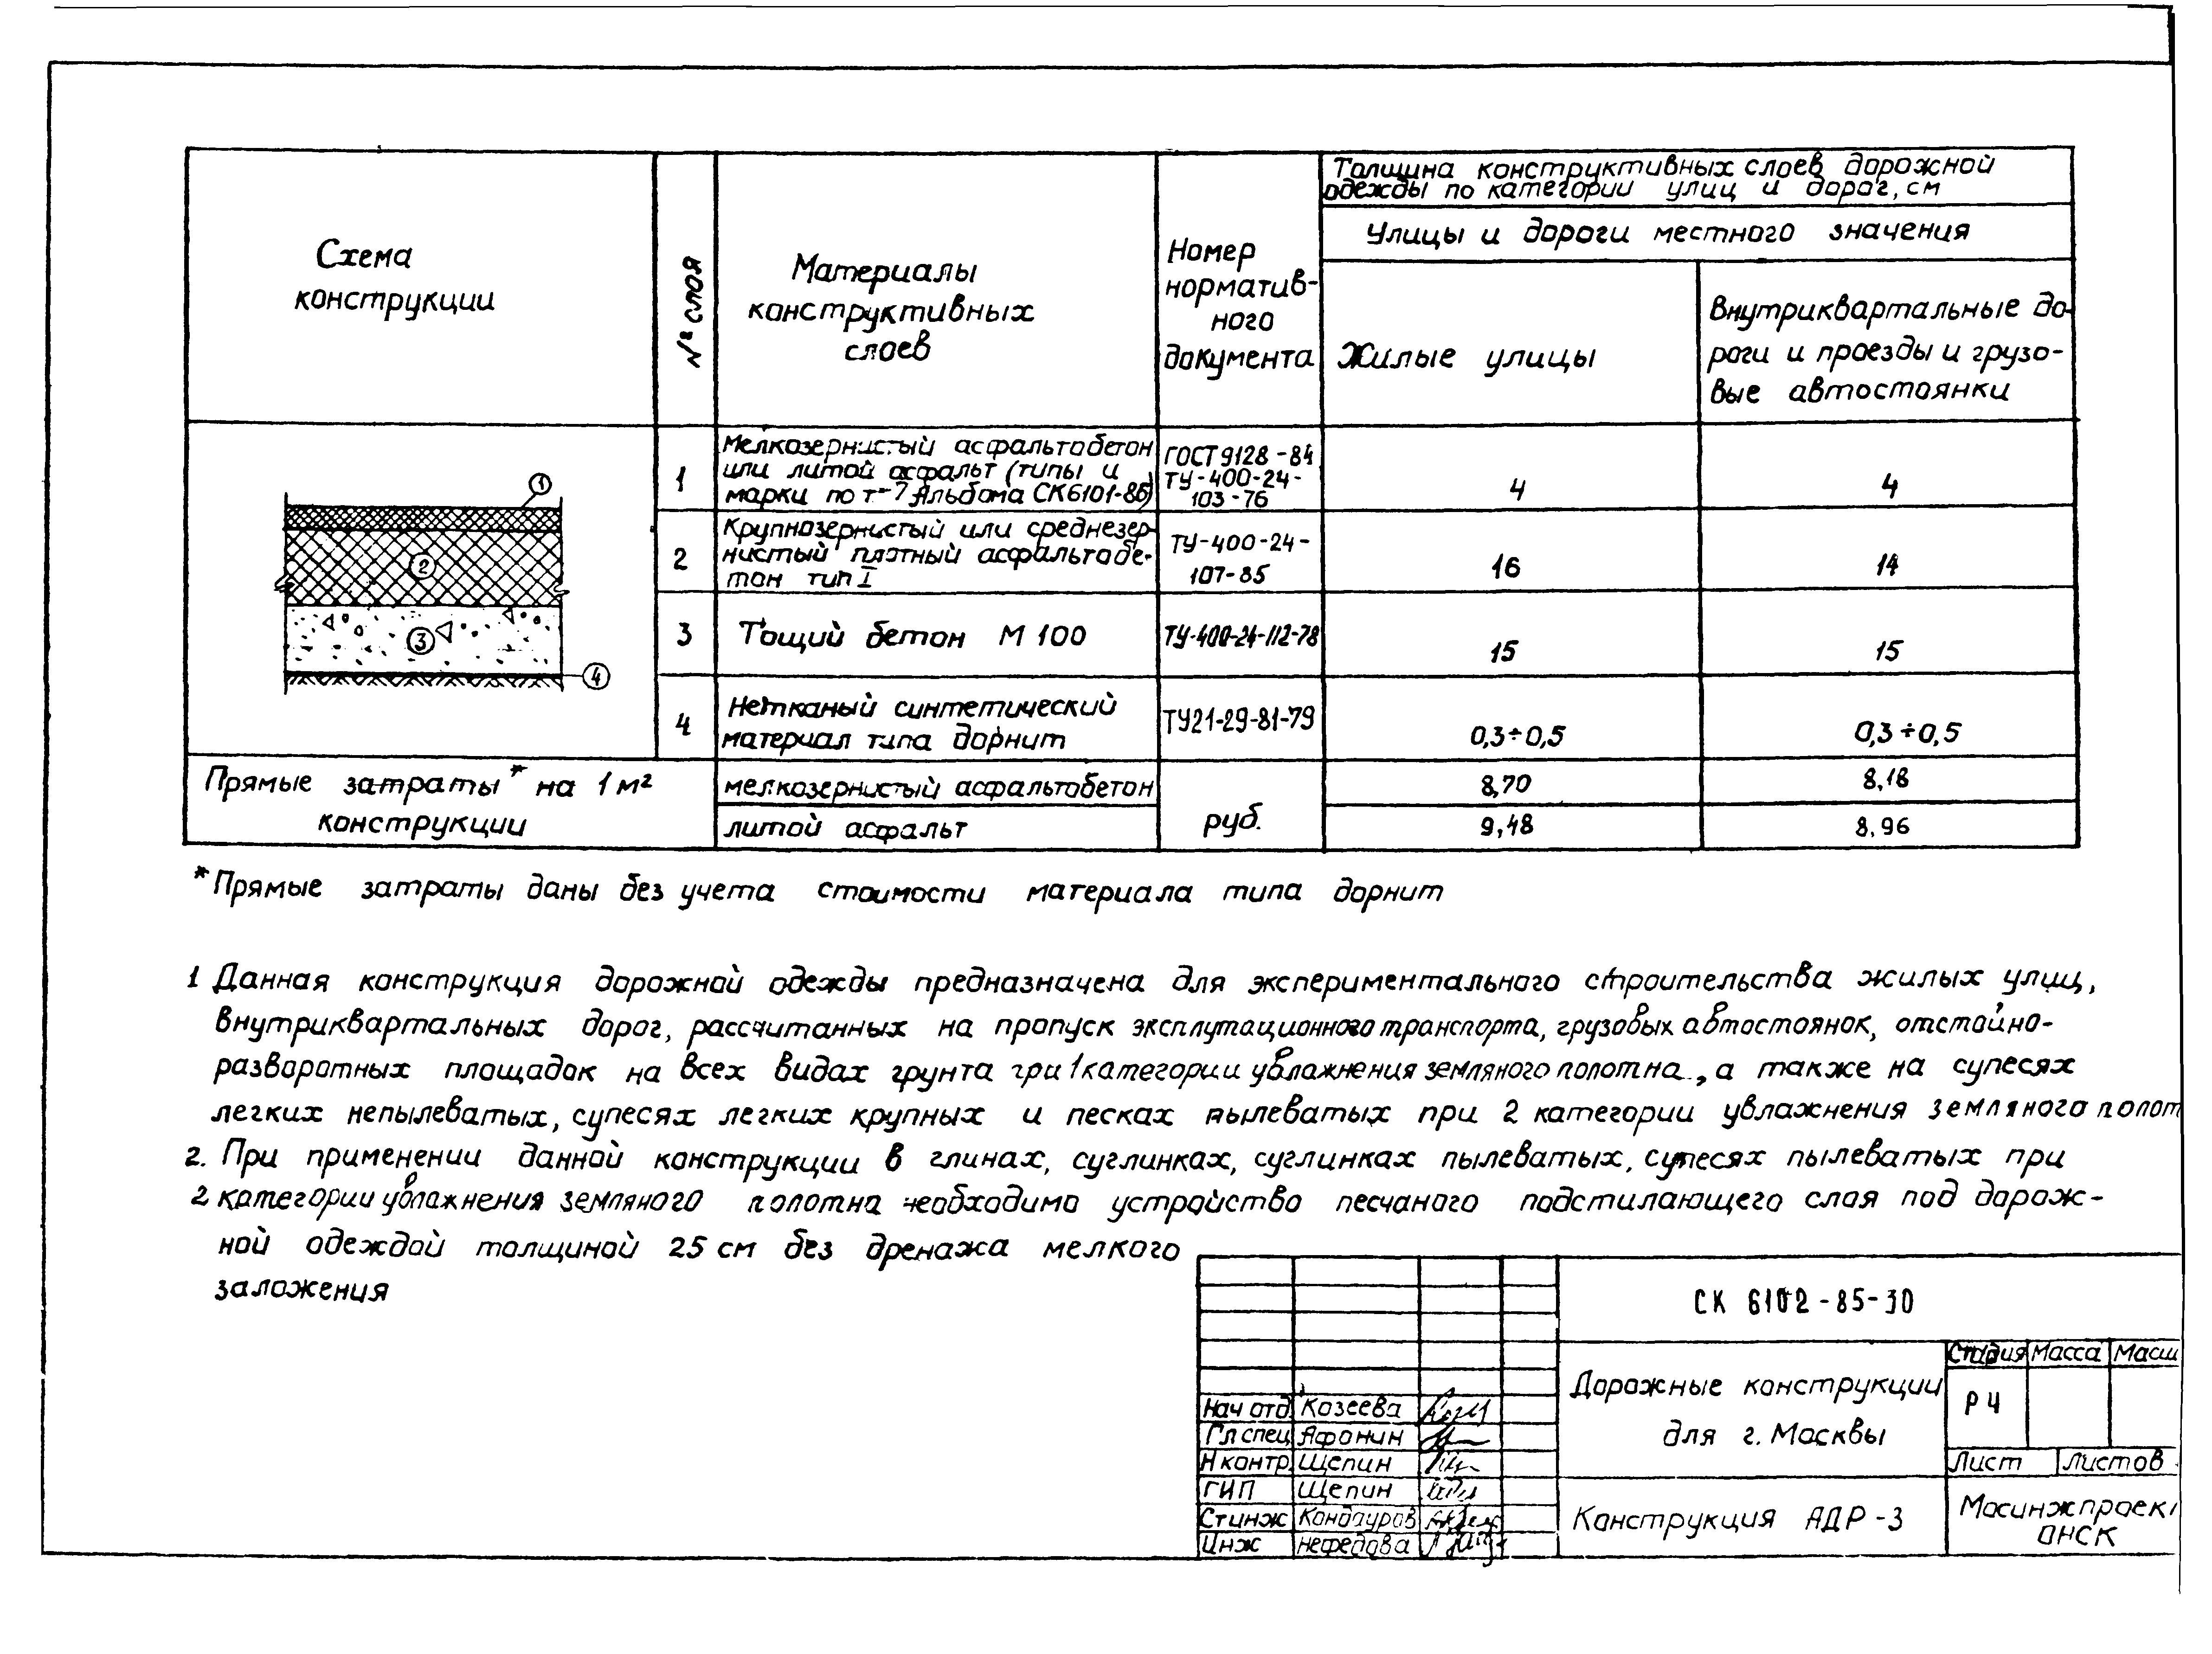 Схема
конструкции
№ слоя
Материалы
конструктивных
слоев
Номер
норматив-
ного
документа
Толщина конструктивных слоев дорожной
одежды по категории улиц и дорог, см
Улицы и дороги местного значения
Жилые улицы
Внутриквартальные до-
роги и проезды и грузо-
вые автостоянки
1
2
3
4
1
Мелкозернистый асфальтобетон
или литой асфальт (типы и
марки по т-7 Альбома СК6101-86)
ГОСТ 9128-84
ТУ-400-24-
103-76
4
4
2
Крупнозернистый или среднезер-
нистый плотный асфальтобе-
тон тип I
ТУ-400-24-
107-85
16
14
3
Тощий бетон М 100
ТУ-400-24-112-78
15
15
4
Нетканый синтетический
материал типа дорнит
ТУ21-29-81-79
0,3÷0,5
0,3÷0,5
Прямые затраты* на 1м²
конструкции
мелкозернистый асфальтобетон
руб.
8,70
8,18
литой асфальт
9,48
8,96
*Прямые затраты даны без учета стоимости материала типа дорнит
1 Данная конструкция дорожной одежды предназначена для экспериментального строительства жилых улиц,
внутриквартальных дорог, рассчитанных на пропуск эксплутационного транспорта, грузовых автостоянок, отстойно-
разворотных площадок на всех видах грунта при 1 категории увлажнения земляного полотна, а также на супесях
легких непылеватых, супесях легких крупных и песках пылеватых при 2 категории увлажнения земляного полот
2. При применении данной конструкции в глинах, суглинках, суглинках пылеватых, супесях пылеватых при
2 категории увлажнения земляного полотна необходимо устройство песчаного подстилающего слоя под дорож-
ной одеждой толщиной 25 см без дренажа мелкого
заложения
СК 6102-85-30
Дорожные конструкции
для г. Москвы
Стадия Масса Масш
РЧ
Лист Листов
Конструкция АДР-3
Мосинжпроект
ОНСК
Нач отд Козеева
Гл спец Афонин
Н контр. Щепин
ГИП Щепин
Ст инж Кондауров
Инж Нефедова